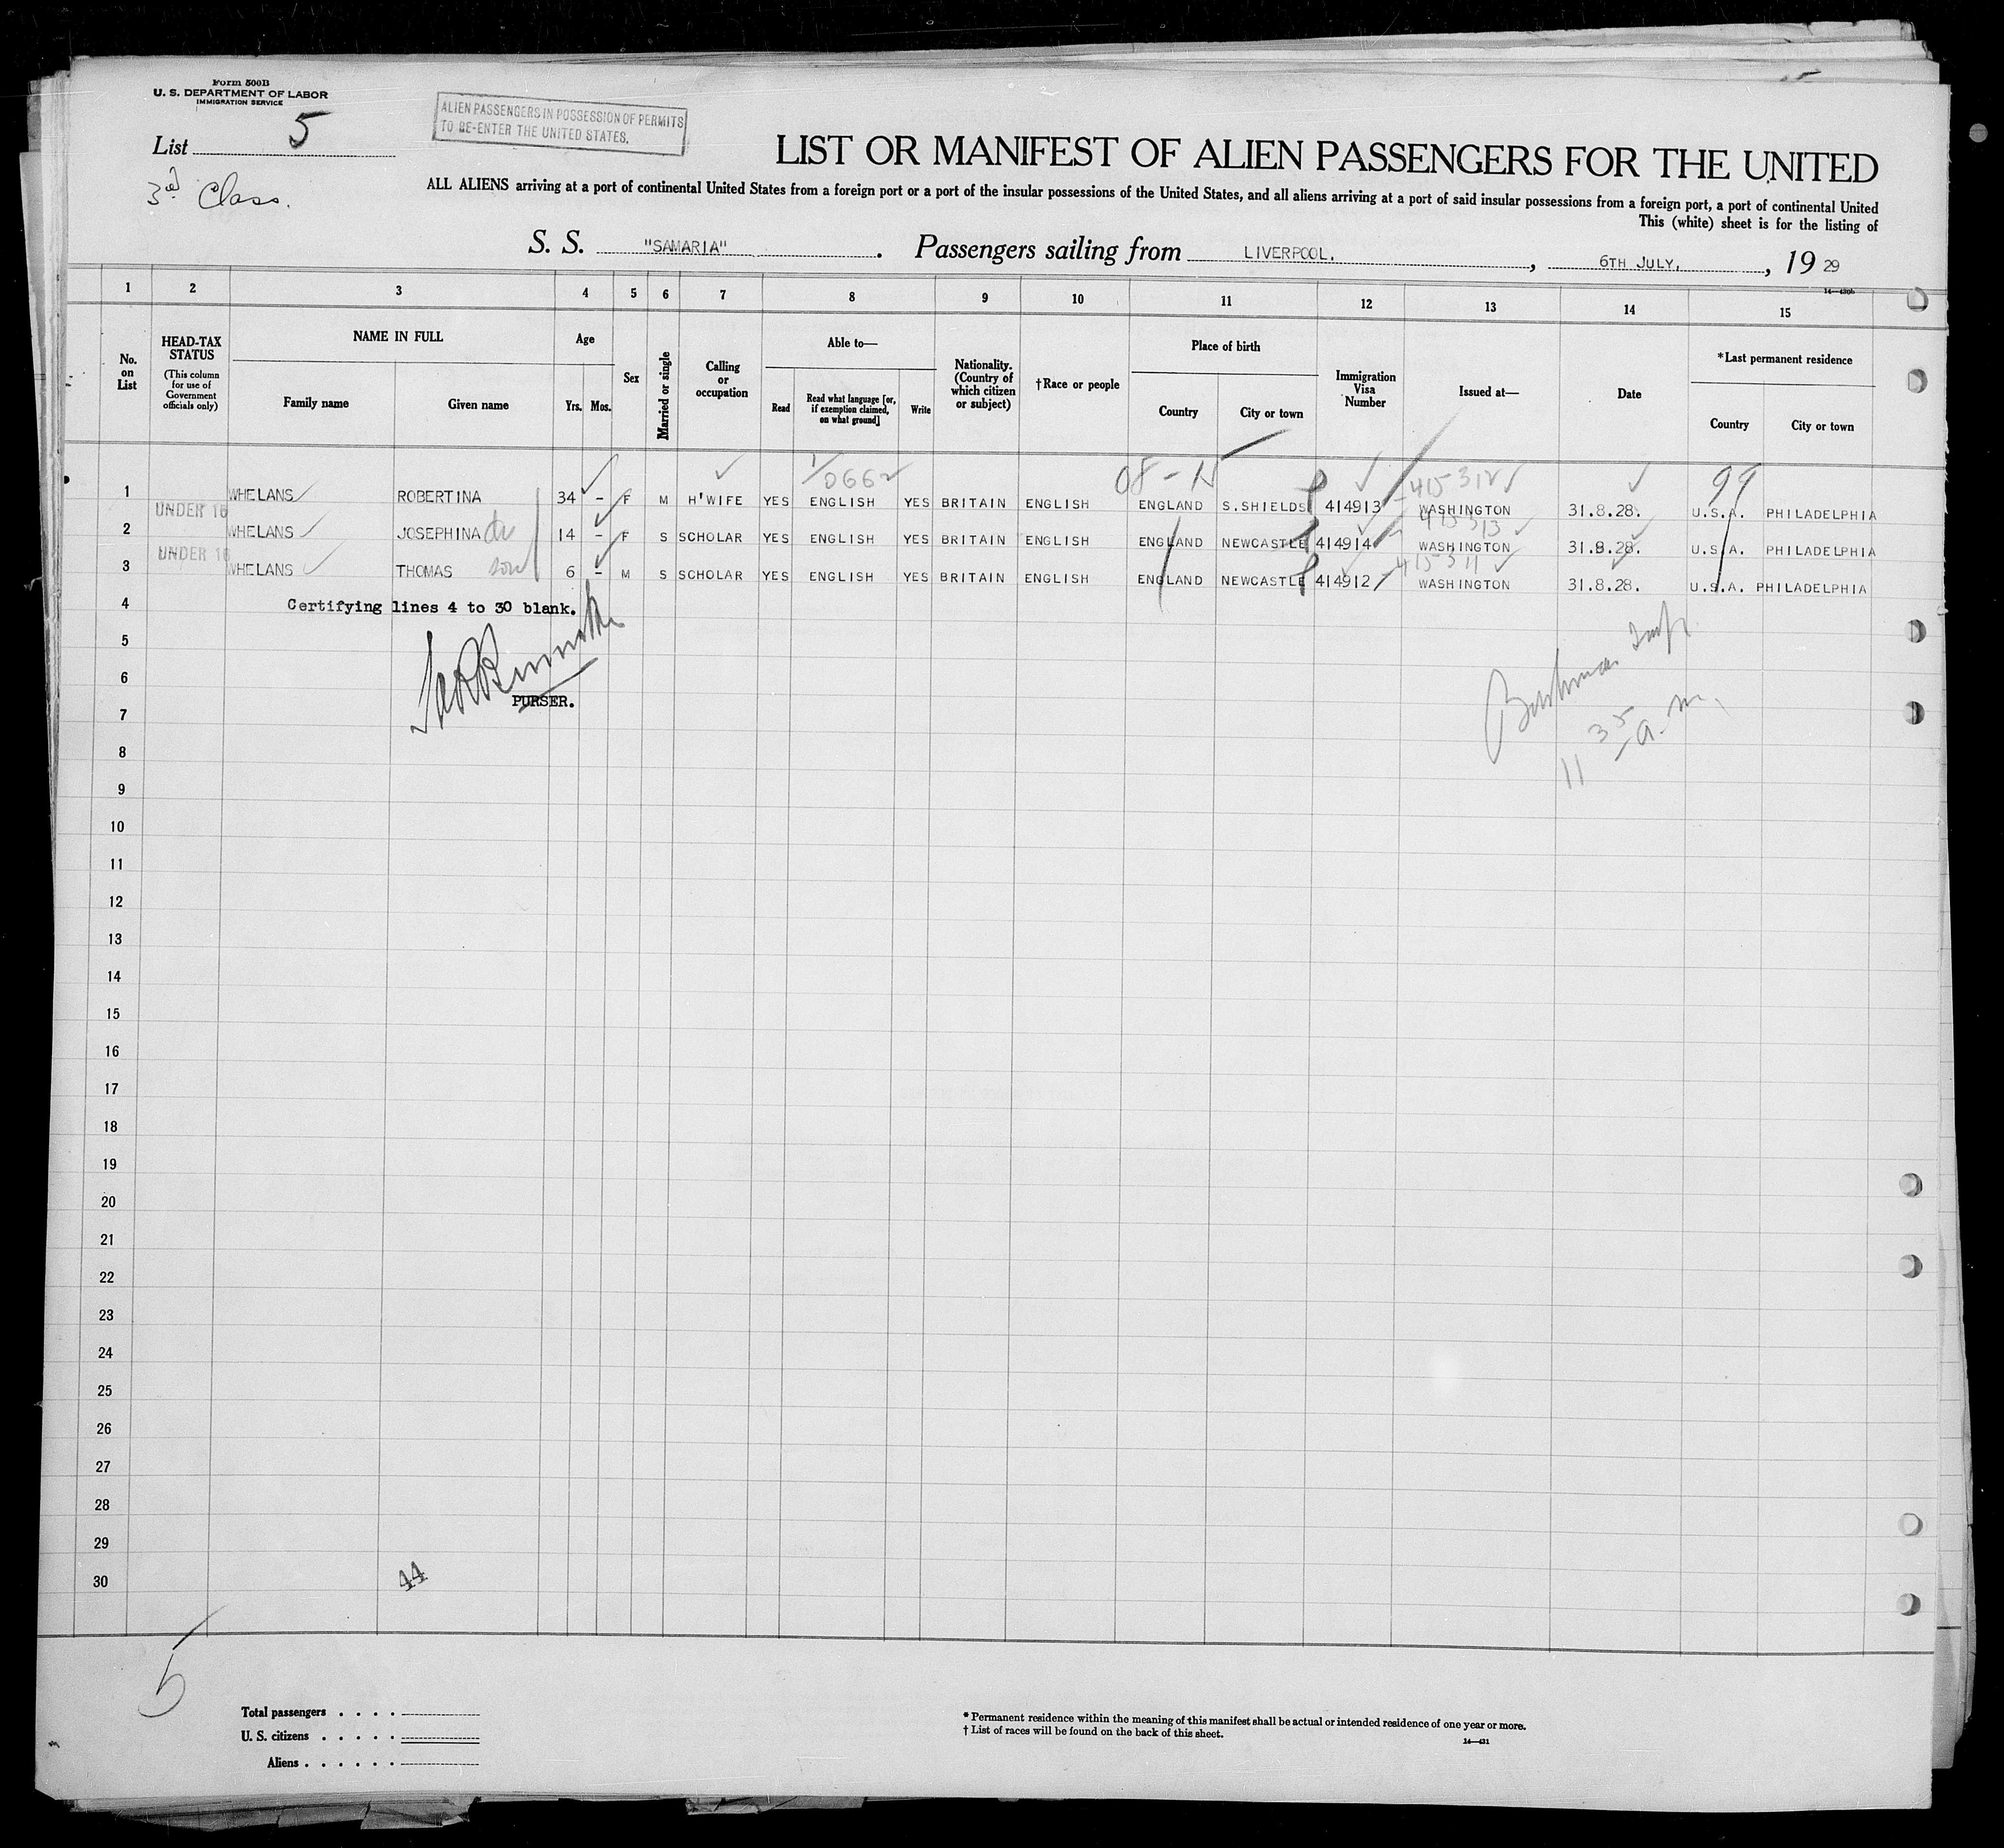 Form 500B
U. S. DEPARTMENT OF LABOR
IMMIGRATION SERVICE
List 5
3rd Class.
ALIEN PASSENGERS IN POSSESSION OF PERMITS
TO RE-ENTER THE UNITED STATES.
LIST OR MANIFEST OF ALIEN PASSENGERS FOR THE UNITED
ALL ALIENS arriving at a port of continental United States from a foreign port or a port of the insular possessions of the United States, and all aliens arriving at a port of said insular possessions from a foreign port, a port of continental United
This (white) sheet is for the listing of
S. S. "SAMARIA" . Passengers sailing from LIVERPOOL. , 6TH JULY. , 19 29
14—430b
1 2 3 4 5 6 7 8 9 10 11 12 13 14 15
No. on List
HEAD-TAX STATUS
(This column for use of Government officials only)
NAME IN FULL
Family name Given name
Age
Yrs. Mos.
Sex
Married or single
Calling or occupation
Able to—
Read
Read what language [or, if exemption claimed, on what ground]
Write
Nationality. (Country of which citizen or subject)
†Race or people
Place of birth
Country City or town
Immigration Visa Number
Issued at—
Date
*Last permanent residence
Country City or town
0662 08-15 415312 99
1 WHELANS ROBERTINA 34 - F M H'WIFE YES ENGLISH YES BRITAIN ENGLISH ENGLAND S.SHIELDS 414913 WASHINGTON 31.8.28. U.S.A. PHILADELPHIA
UNDER 16 415313
2 WHELANS JOSEPHINA da 14 - F S SCHOLAR YES ENGLISH YES BRITAIN ENGLISH ENGLAND NEWCASTLE 414914 WASHINGTON 31.8.28. U.S.A. PHILADELPHIA
UNDER 16 415311
3 WHELANS THOMAS son 6 - M S SCHOLAR YES ENGLISH YES BRITAIN ENGLISH ENGLAND NEWCASTLE 414912 WASHINGTON 31.8.28. U.S.A. PHILADELPHIA
4 Certifying lines 4 to 30 blank.
5
6
PURSER.
7
11 35 a.m.
8
9
10
11
12
13
14
15
16
17
18
19
20
21
22
23
24
25
26
27
28
29
30 44
5
Total passengers . . . .
U. S. citizens . . . . .
Aliens . . . . . .
* Permanent residence within the meaning of this manifest shall be actual or intended residence of one year or more.
† List of races will be found on the back of this sheet.
14—431